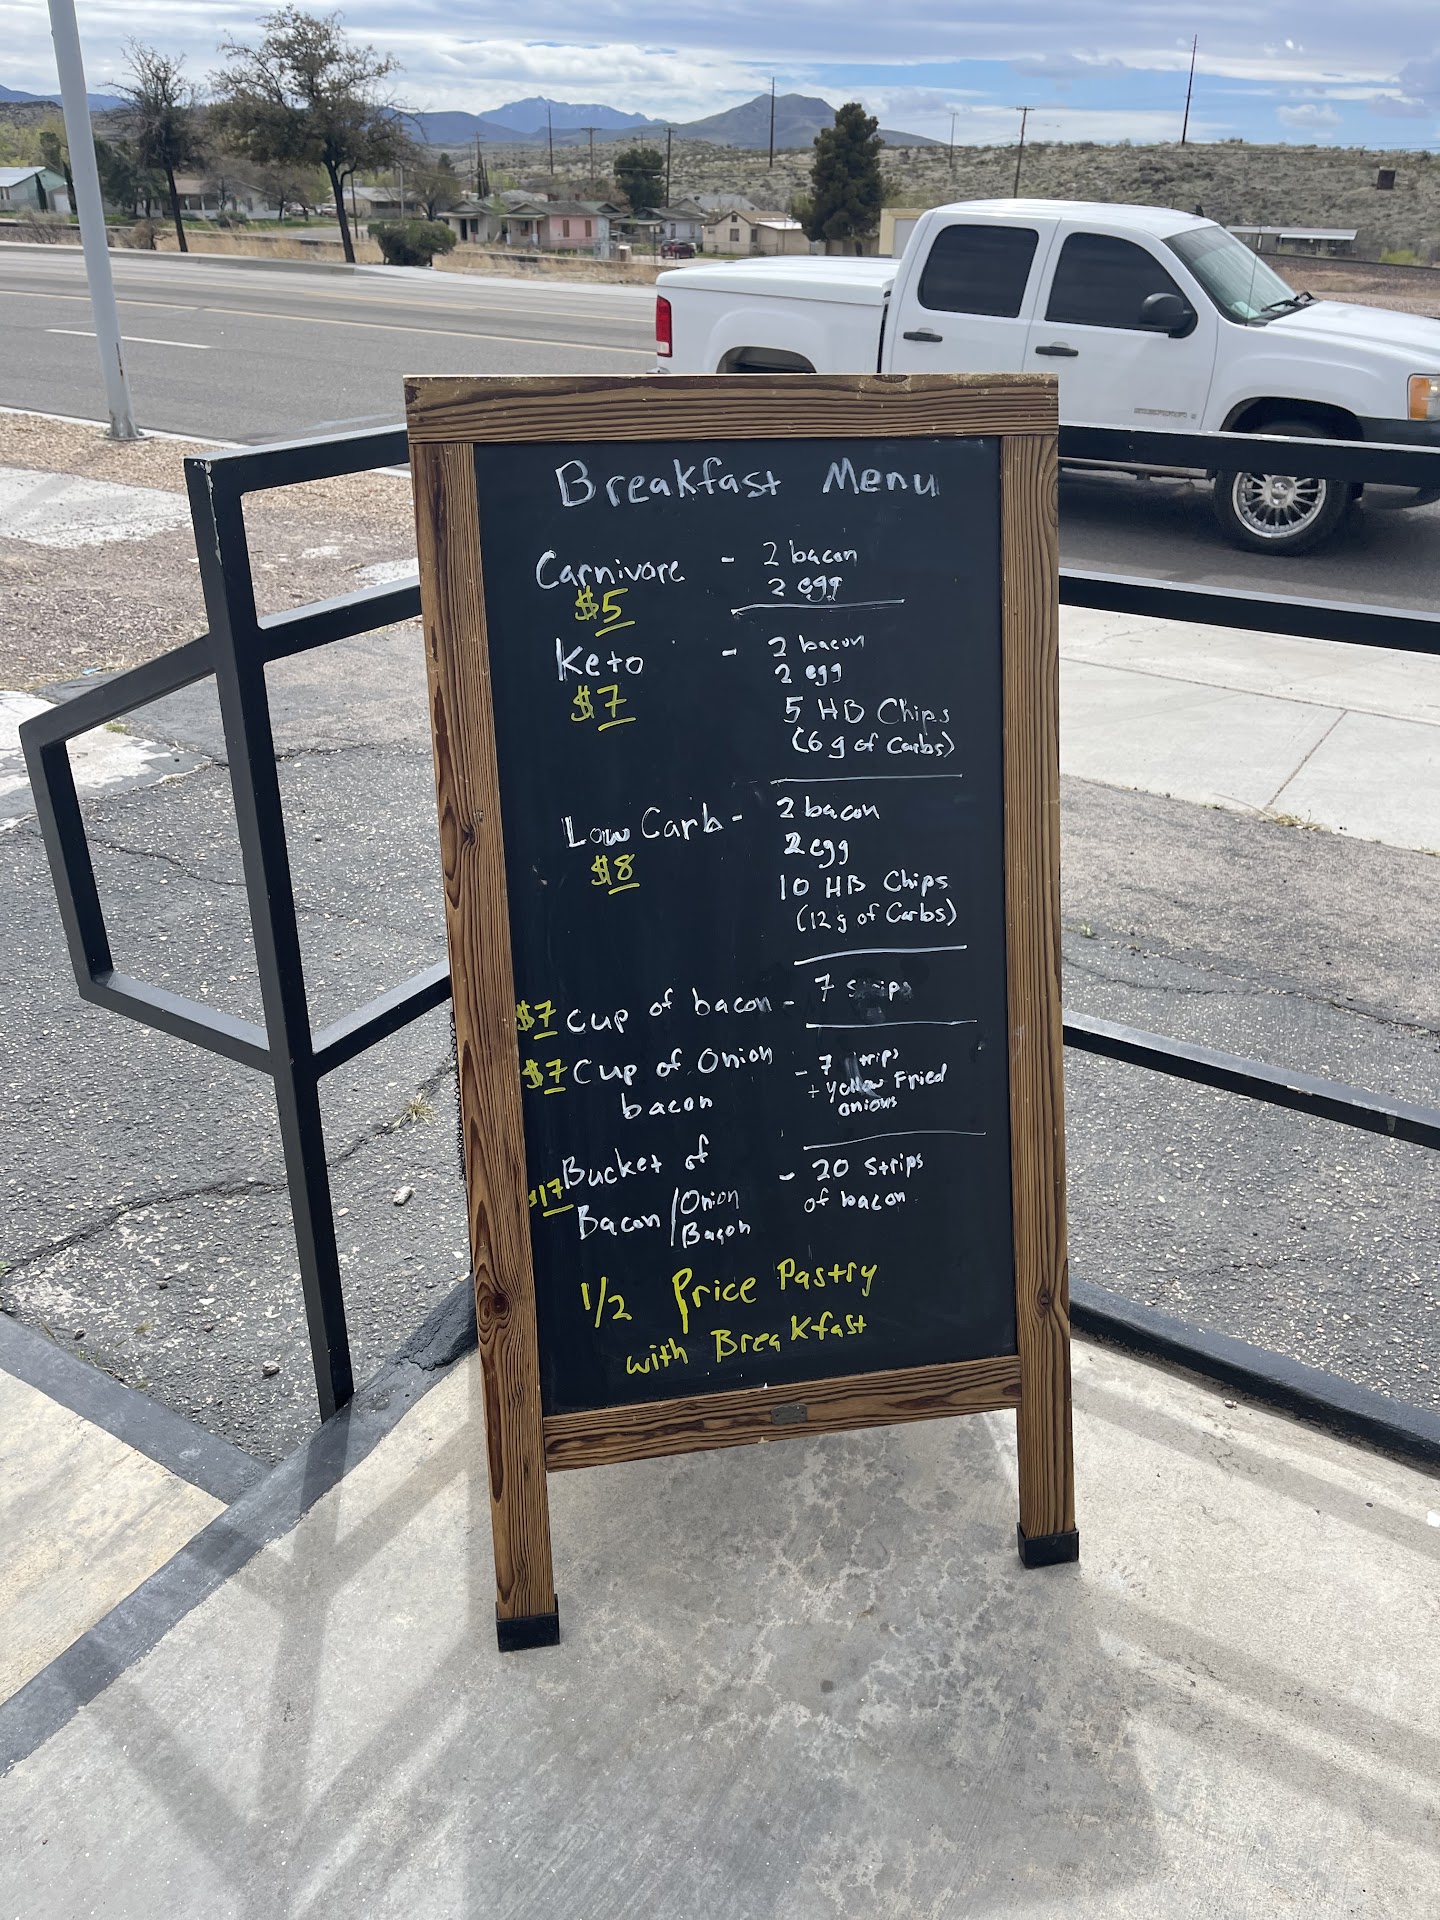 Breakfast Menu
Carnivore - 2 bacon
2 egg
$5
Keto - 2 bacon
2 egg
$7
5 HB Chips
(6 g of Carbs)
Low Carb - 2 bacon
2 egg
$8
10 HB Chips
(12 g of Carbs)
$7 Cup of bacon - 7 strips
$7 Cup of Onion bacon - 7 strips
+ Yellow Fried
onions
$17 Bucket of
Bacon / Onion
Bacon
- 20 Strips
of bacon
1/2 Price Pastry
with Breakfast